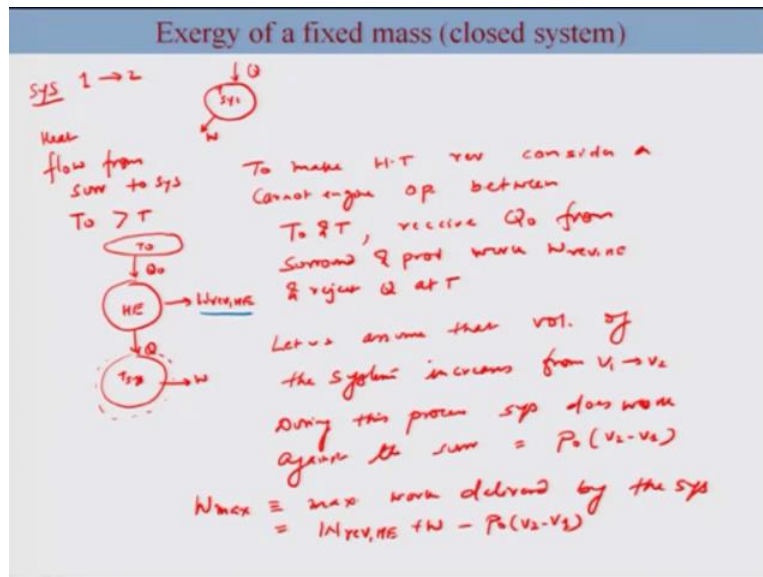 Exergy of a fixed mass (closed system)
sys 1 → 2
Q
sys
W
Heat
flow from
surr to sys
To > T
To
Qo
HE → Wrev,HE
Q
Tsys → W
To make H.T rev consider a
Carnot engine op between
To & T, receive Qo from
Surround & prod work Wrev,HE
& reject Q at T
Let us assume that vol. of
the system increases from V1 → V2
During this process sys does work
against the surr = Po(V2-V1)
Wmax ≡ max work delivered by the sys
= Wrev,HE + W - Po(V2-V1)